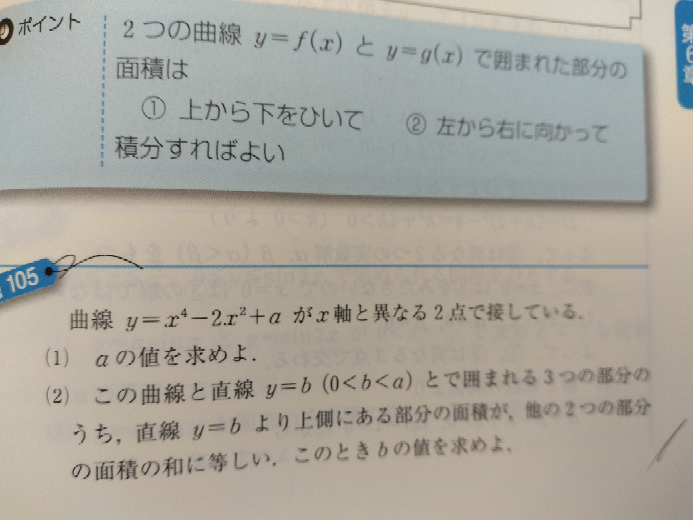 ポイント
2つの曲線 y=f(x) と y=g(x) で囲まれた部分の
面積は
① 上から下をひいて ② 左から右に向かって
積分すればよい
第6章
105
曲線 y=x⁴−2x²+a が x軸と異なる2点で接している.
(1) aの値を求めよ.
(2) この曲線と直線 y=b (0<b<a) とで囲まれる3つの部分の
うち, 直線 y=b より上側にある部分の面積が, 他の2つの部分
の面積の和に等しい. このときbの値を求めよ.